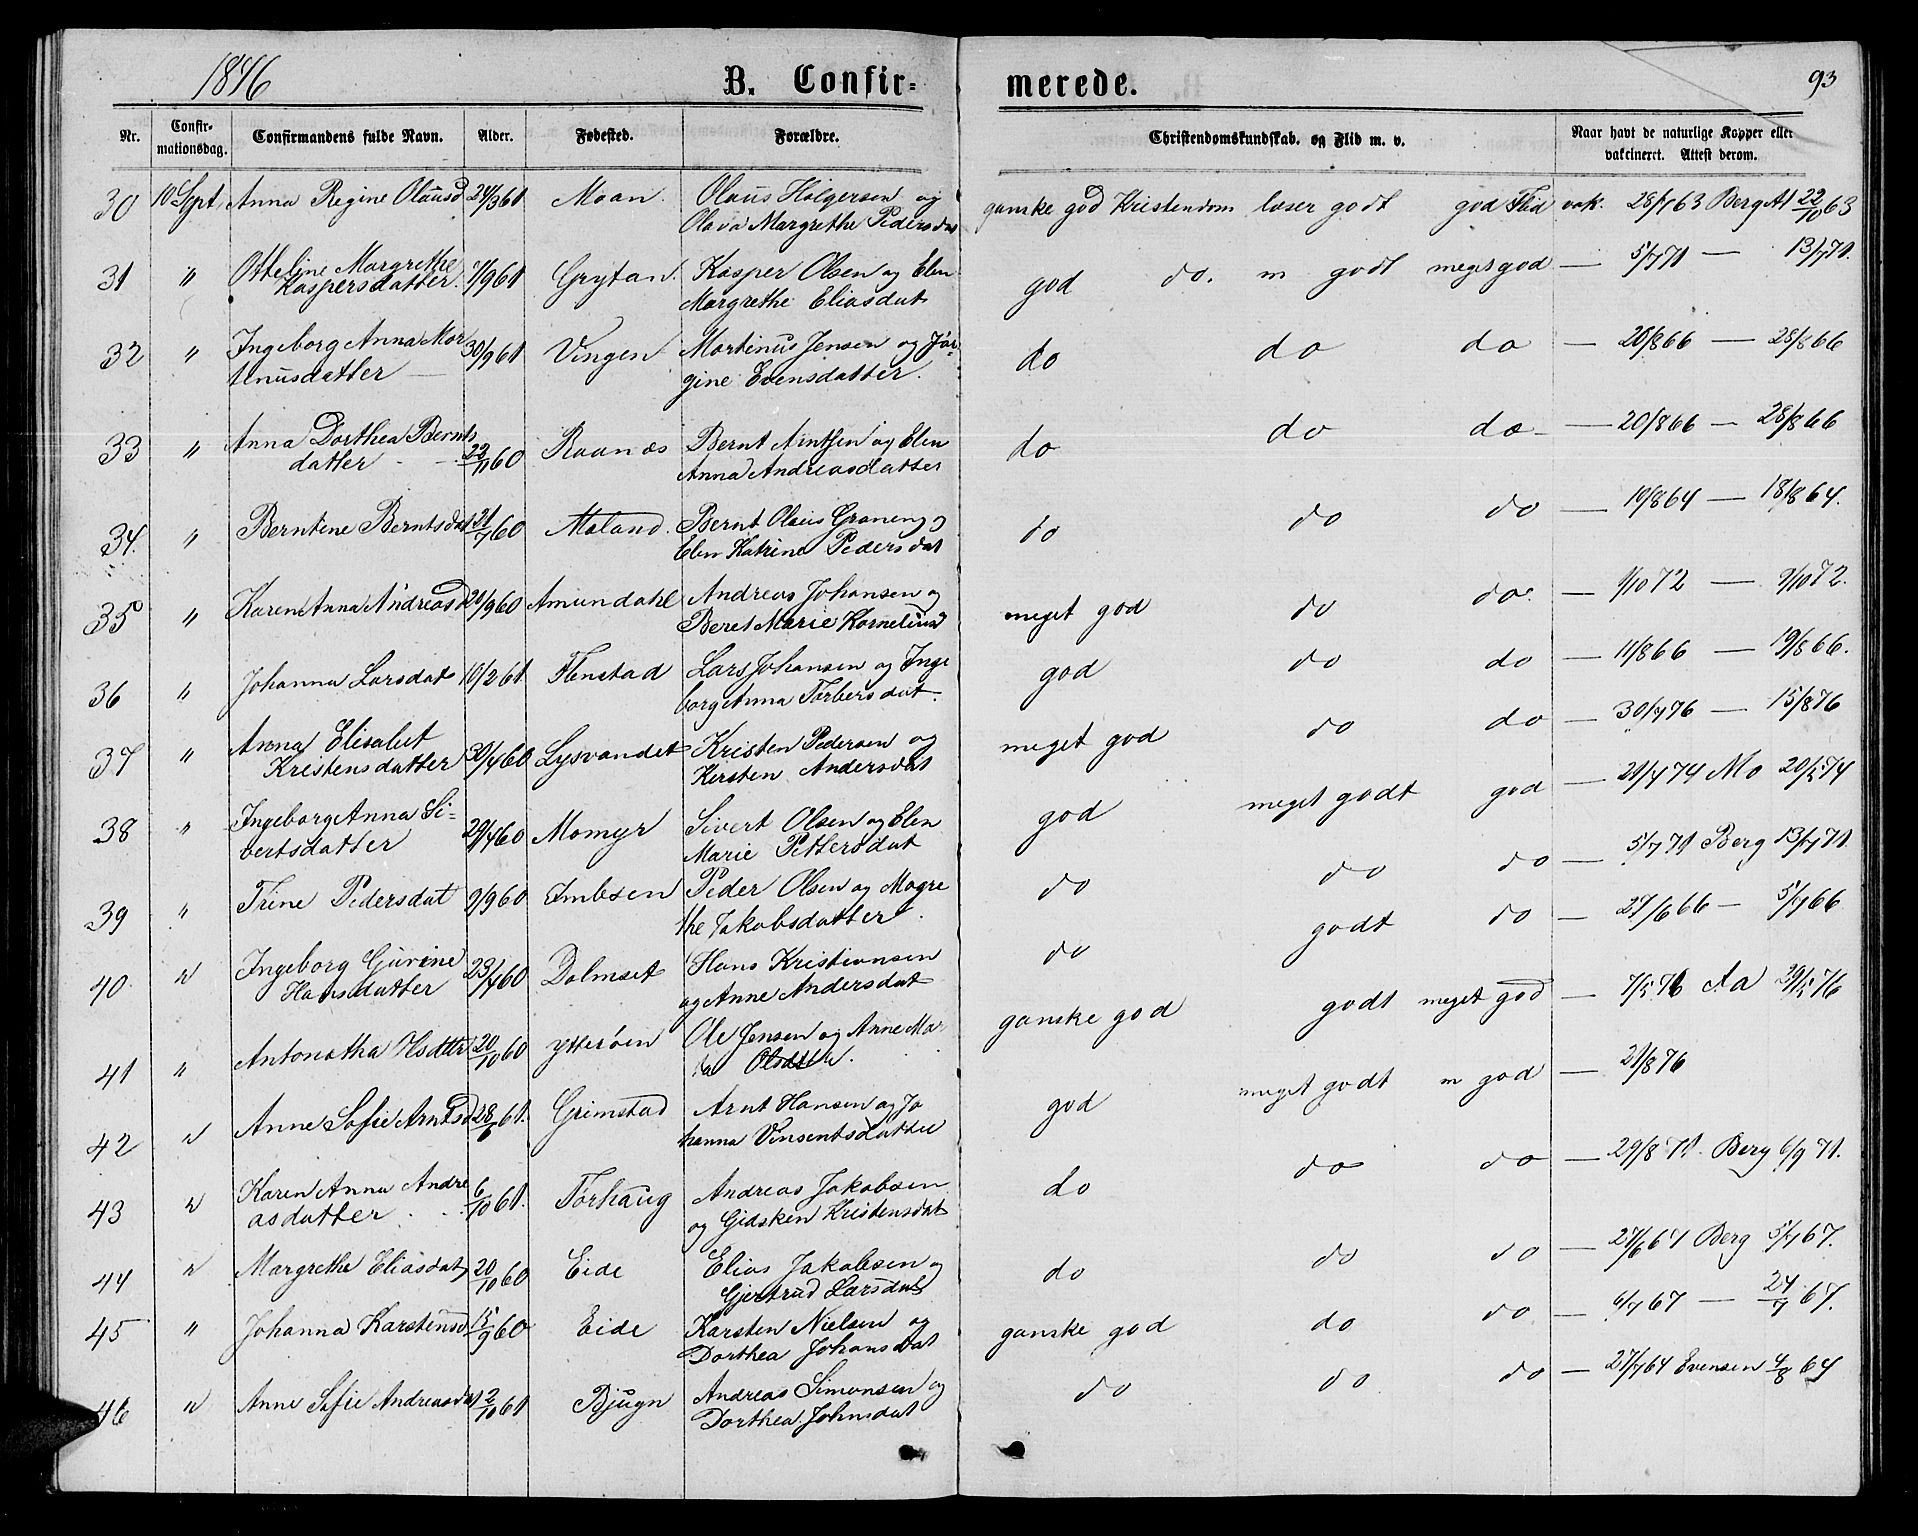 1876
B. Confir-
merede.
93
Nr.
Confir-
mationsdag.
Confirmandens fulde Navn.
Alder.
Fødested.
Forældre.
Christendomskundskab. og Flid m. v.
Naar havt de naturlige Kopper eller
vakcineret. Attest derom.
30 10 Sept. Anna Regine Olausd 24/3 61 Moan. Olaus Holgersen og ganske god Kristendom læser godt god Flid vak. 28/7 63 Berg At 22/10 63
Olava Margrethe Pedersdat
31 " Otteline Margrethe 7/9 61 Grytan. Kasper Olsen og Elen god do. m godt meget god — 5/7 71 — 13/7 71.
Kaspersdatter. Margrethe Eliasdat
32 " Ingeborg Anna Mar 30/9 61 Vingen Martinus Jensen og Jör- do do do — 20/8 66 — 28/8 66
tinusdatter — gine Evensdatter.
33 " Anna Dorthea Bernts 22/11 60 Raanæs Bernt Arntsen og Elen do do do — 20/8 66 — 28/8 66
datter Anna Andreasdatter
34. " Berntene Berntsdat 21/7 60 Moland. Bernt Olaus Graneng og do do do — 10/8 64 — 18/8 64.
Elen Katrine Pedersdat
35 " Karen Anna Andreasd 20/9 60 Amundahl Andreas Johansen og meget god do do. — 1/10 72 — 9/10 72.
Beret Marie Kornelius
36 " Johanna Larsdat 10/2 61 Flenstad Lars Johansen og Inge god do do — 11/8 66 — 19/8 66.
borg Anna Torbersdat
37 " Anna Elisabet 30/4 60 Lysvandet Kristen Pedersen og meget god do do — 30/7 76 — 15/8 76
Kristensdatter Kersten Andersdat
38 " Ingeborg Anna Si- 29/4 60 Momyr Sivert Olsen og Elen god meget godt god — 21/4 74 Mo 20/5 74
vertsdatter Marie Pettersdat
39 " Trine Pedersdat 9/9 60 Imbsen Peder Olsen og Magre do do do — 5/7 71 Berg 13/7 71.
the Jakobsdatter.
40. " Ingeborg Gurine 23/4 60 Dolmset Hans Kristiansen do godt do — 27/6 66 — 5/7 66
Hansdatter og Anne Andersdat
41 " Antonetha Olsdttr 20/10 60 ytterøen Ole Jensen og Anne Ma ganske god godt meget god — 7/5 76 Aa 29/5 76
Olsdatter.
42 " Anne Sofie Arntsd 28/6 61. Grimstad Arnt Hansen og Jo god meget godt m god — 21/8 76
hanna Vinsentsdatter
43 " Karen Anna Andre 6/10 61. Torhaug Andreas Jakobsen do do do — 29/8 71. Berg 6/9 71.
asdatter og Gidsken Kristensdat
44 " Margrethe Eliasdat 20/10 60 Eide Elias Jakobsen og do do do — 27/6 67 Berg 5/7 67.
Gjertrud Larsdat
45 " Johanna Karstensd 15/9 60 Eide Karsten Nielsen og ganske god do do — 6/7 67 — 24/7 67.
Dorthea Johansdat
46 " Anne Sofie Andreasdat 2/10 61 Bjugn Andreas Simonsen og do do do — 27/7 64 Evensen 4/8 64
Dorthea Johnsdat